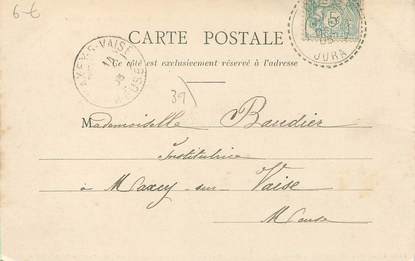 6-€
CARTE POSTALE
Ce côté est exclusivement réservé à l'adresse
5c
JURA
MAXEY-S-VAISE
MEUSE
39
Mademoiselle Baudier
Institutrice
à Maxey-sur-Vaise
Meuse